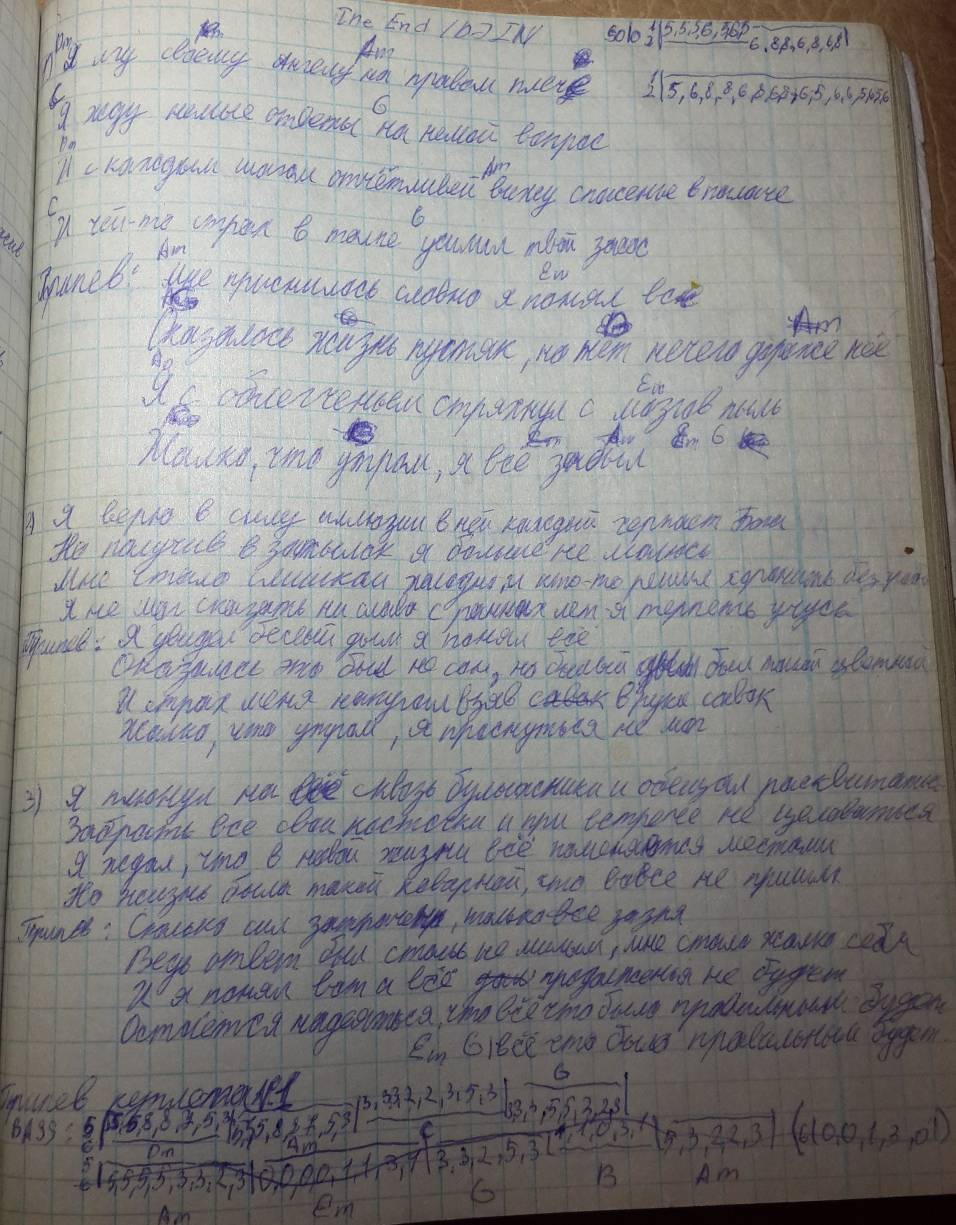 The End
Solo 1/2 | 5,5,5,6,5,6,5
6,8,8,6,8,6,8|
1/2 | 5,6,8,8,6
Dm Am
1) Я лгу своему ангелу на правом плече
C G
Я жду немые ответы на немой вопрос
Dm Am
И с каждым шагом отчётливей вижу спасенье в палаче
C G
И чей-то страх в толпе усилил твой засос
Am Em
Припев: Мне приснилось словно я понял все
Am
Оказалось жизнь пустяк, но нет нечего дороже неё
Am Em
Я с облегченьем стряхнул с мозгов пыль
Em Am Em G
Жалко, что утром, я всё забыл
2) Я верю в силу иллюзии в ней каждый черпает
Но получив в затылок я больше не молюсь
Мне стало слишком холодно и кто-то решил хоронить без
Я не мог сказать ни слова с ранних лет я терпеть учусь
Припев: Я увидел белый дым я понял всё
Оказалась это был не сон, но белый дым был такой цветной
И страх меня напугал взяв в руки савок
Жалко, что утром, я проснуться не мог
3) Я плюнул на всё сквозь булыжники и обещал расквитаться
Забрать все свои косточки и при встрече не целоваться
Я ждал, что в новой жизни всё поменяются местами
Но жизнь была такой коварной, что вовсе не пришла
Припев: Сколько сил затрачено, только все зазря
Ведь ответ был столь не милым, мне стало жалко себя
И я понял вот и всё продолженья не будет
Остаётся надеяться, что всё что было правильным будет
Em G всё что было правильным будет.
Припев
G
BASS: 3,3,3,2,2,3,5,3| 3,3,5,5,3,2,3|
Dm Am C
5,5,5,5,3,3,2,3|0,0,0,0,1,1,3,1|3,3,2,5,3|1,1,0,3,1|5,3,2,2,3| (6|0,0,1,3,0|)
Am Em G B Am